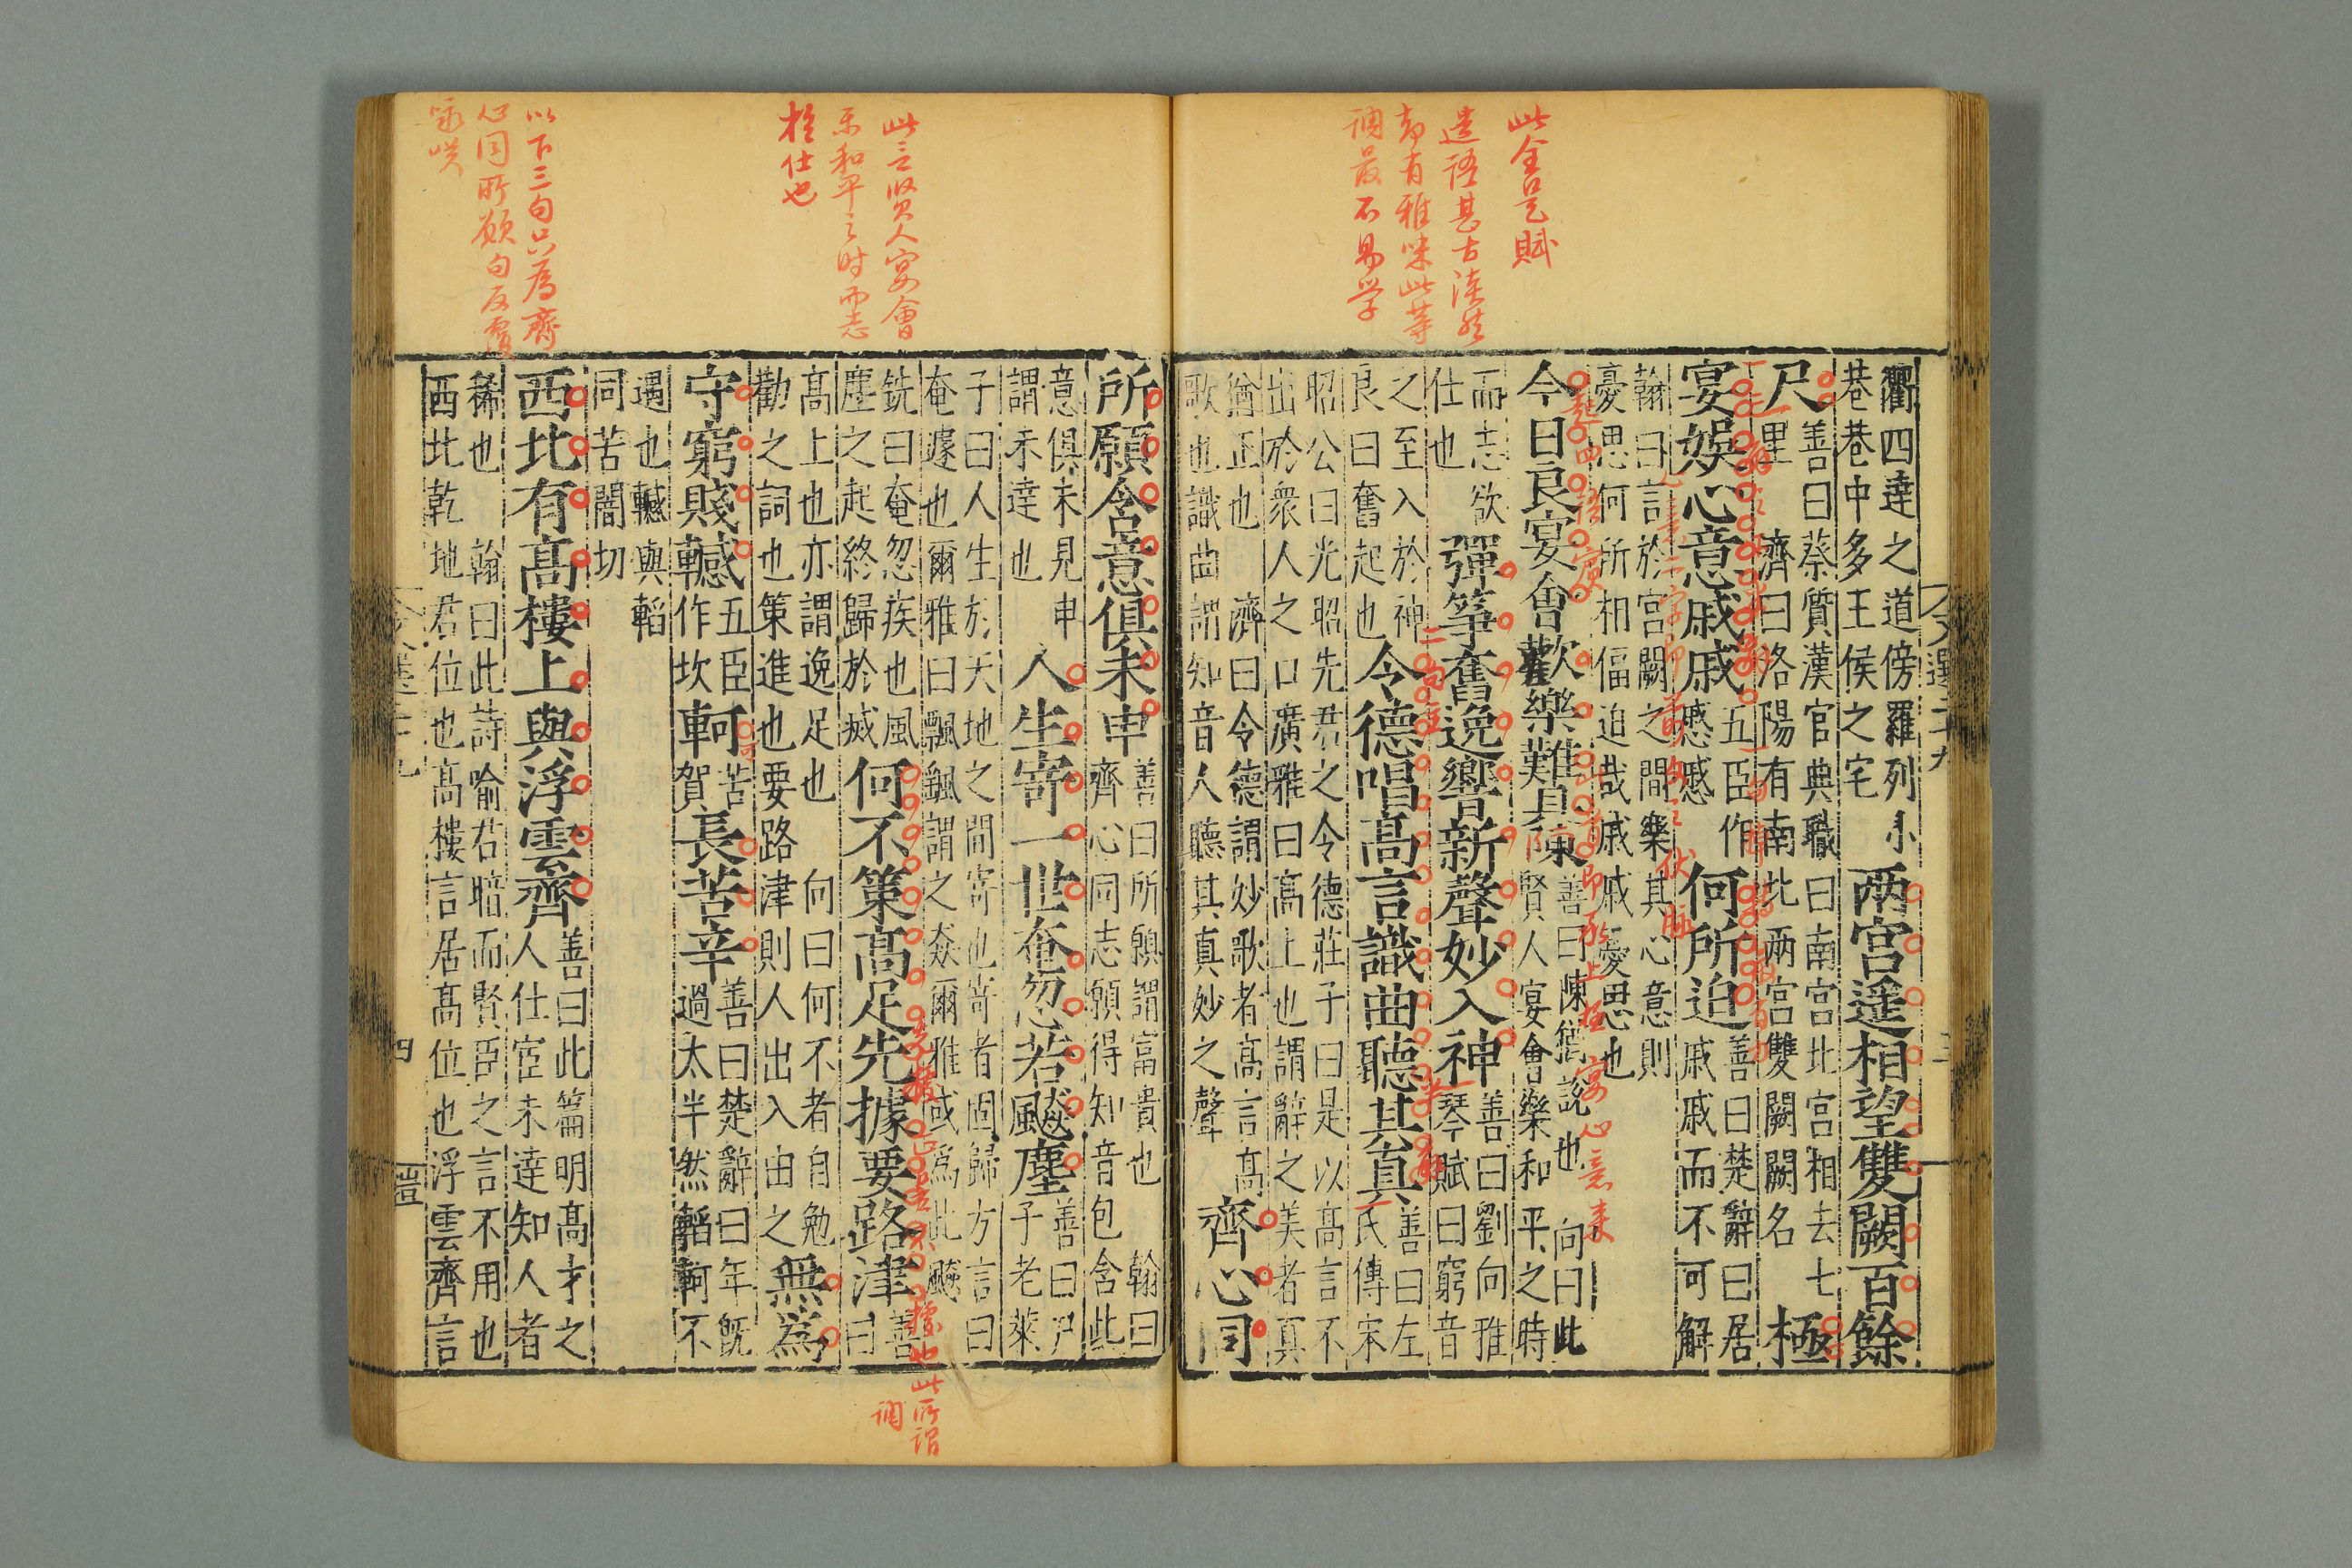 此全是賦
遣語甚古淡然
却有雅味此等
調最不易学
文選二十九
三
衢四達之道傍羅列小
巷巷中多王侯之宅
两宫遥相望雙闕百餘
尺
善曰蔡質漢官典職曰南宫北宫相去七
里 濟曰洛陽有南北兩宫雙闕闕名
極
宴娛心意戚戚
五臣作
慼慼
何所迫
善曰楚辭曰居
戚戚而不可解
翰曰言於宫闕之間樂其心意則
憂思何所相偪迫哉戚戚憂思也
今日良宴會歡樂難具陳
善曰陳猶說也 向曰此
賢人宴會樂和平之時
而志欲
仕也
彈筝奮逸響新聲妙入神
善曰劉向雅
琴賦曰窮音
之至入於神
良曰奮起也
令德唱高言識曲聽其真
善曰左
氏傳宋
昭公曰光昭先君之令德莊子曰是以高言不
出於衆人之口廣雅曰高上也謂辭之美者真
猶正也 濟曰令德謂妙歌者高言高
歌也識曲謂知音人聽其真妙之聲
齊心同
此言賢人宴會
樂和平之时而志
於仕也
以下三句只為齊
心同所願句反覆
所願含意俱未申
善曰所願謂富貴也 翰曰
齊心同志願得知音包含此
意俱未見申
謂未達也
人生寄一世奄忽若飈塵
善曰尸
子老萊
子曰人生於天地之間寄也寄者固歸方言曰
奄遽也爾雅曰飄颻謂之猋爾雅或為此飈
銑曰奄忽疾也風
塵之起終歸於滅
何不策高足先據要路津
善
曰
高上也亦謂逸足也 向曰何不者自勉
勸之詞也策進也要路津則人出入由之
無為
守窮賤轗
五臣
作坎
軻
苦
賀
長苦辛
善曰楚辭曰年旣
過太半然轗軻不
遇也轗與輡
同苦闇切
西北有高樓上與浮雲齊
善曰此篇明高才之
人仕宦未達知人者
稀也 翰曰此詩喻君暗而賢臣之言不用也
西北乾地君位也高樓言居高位也浮雲齊言
四
此所謂
調